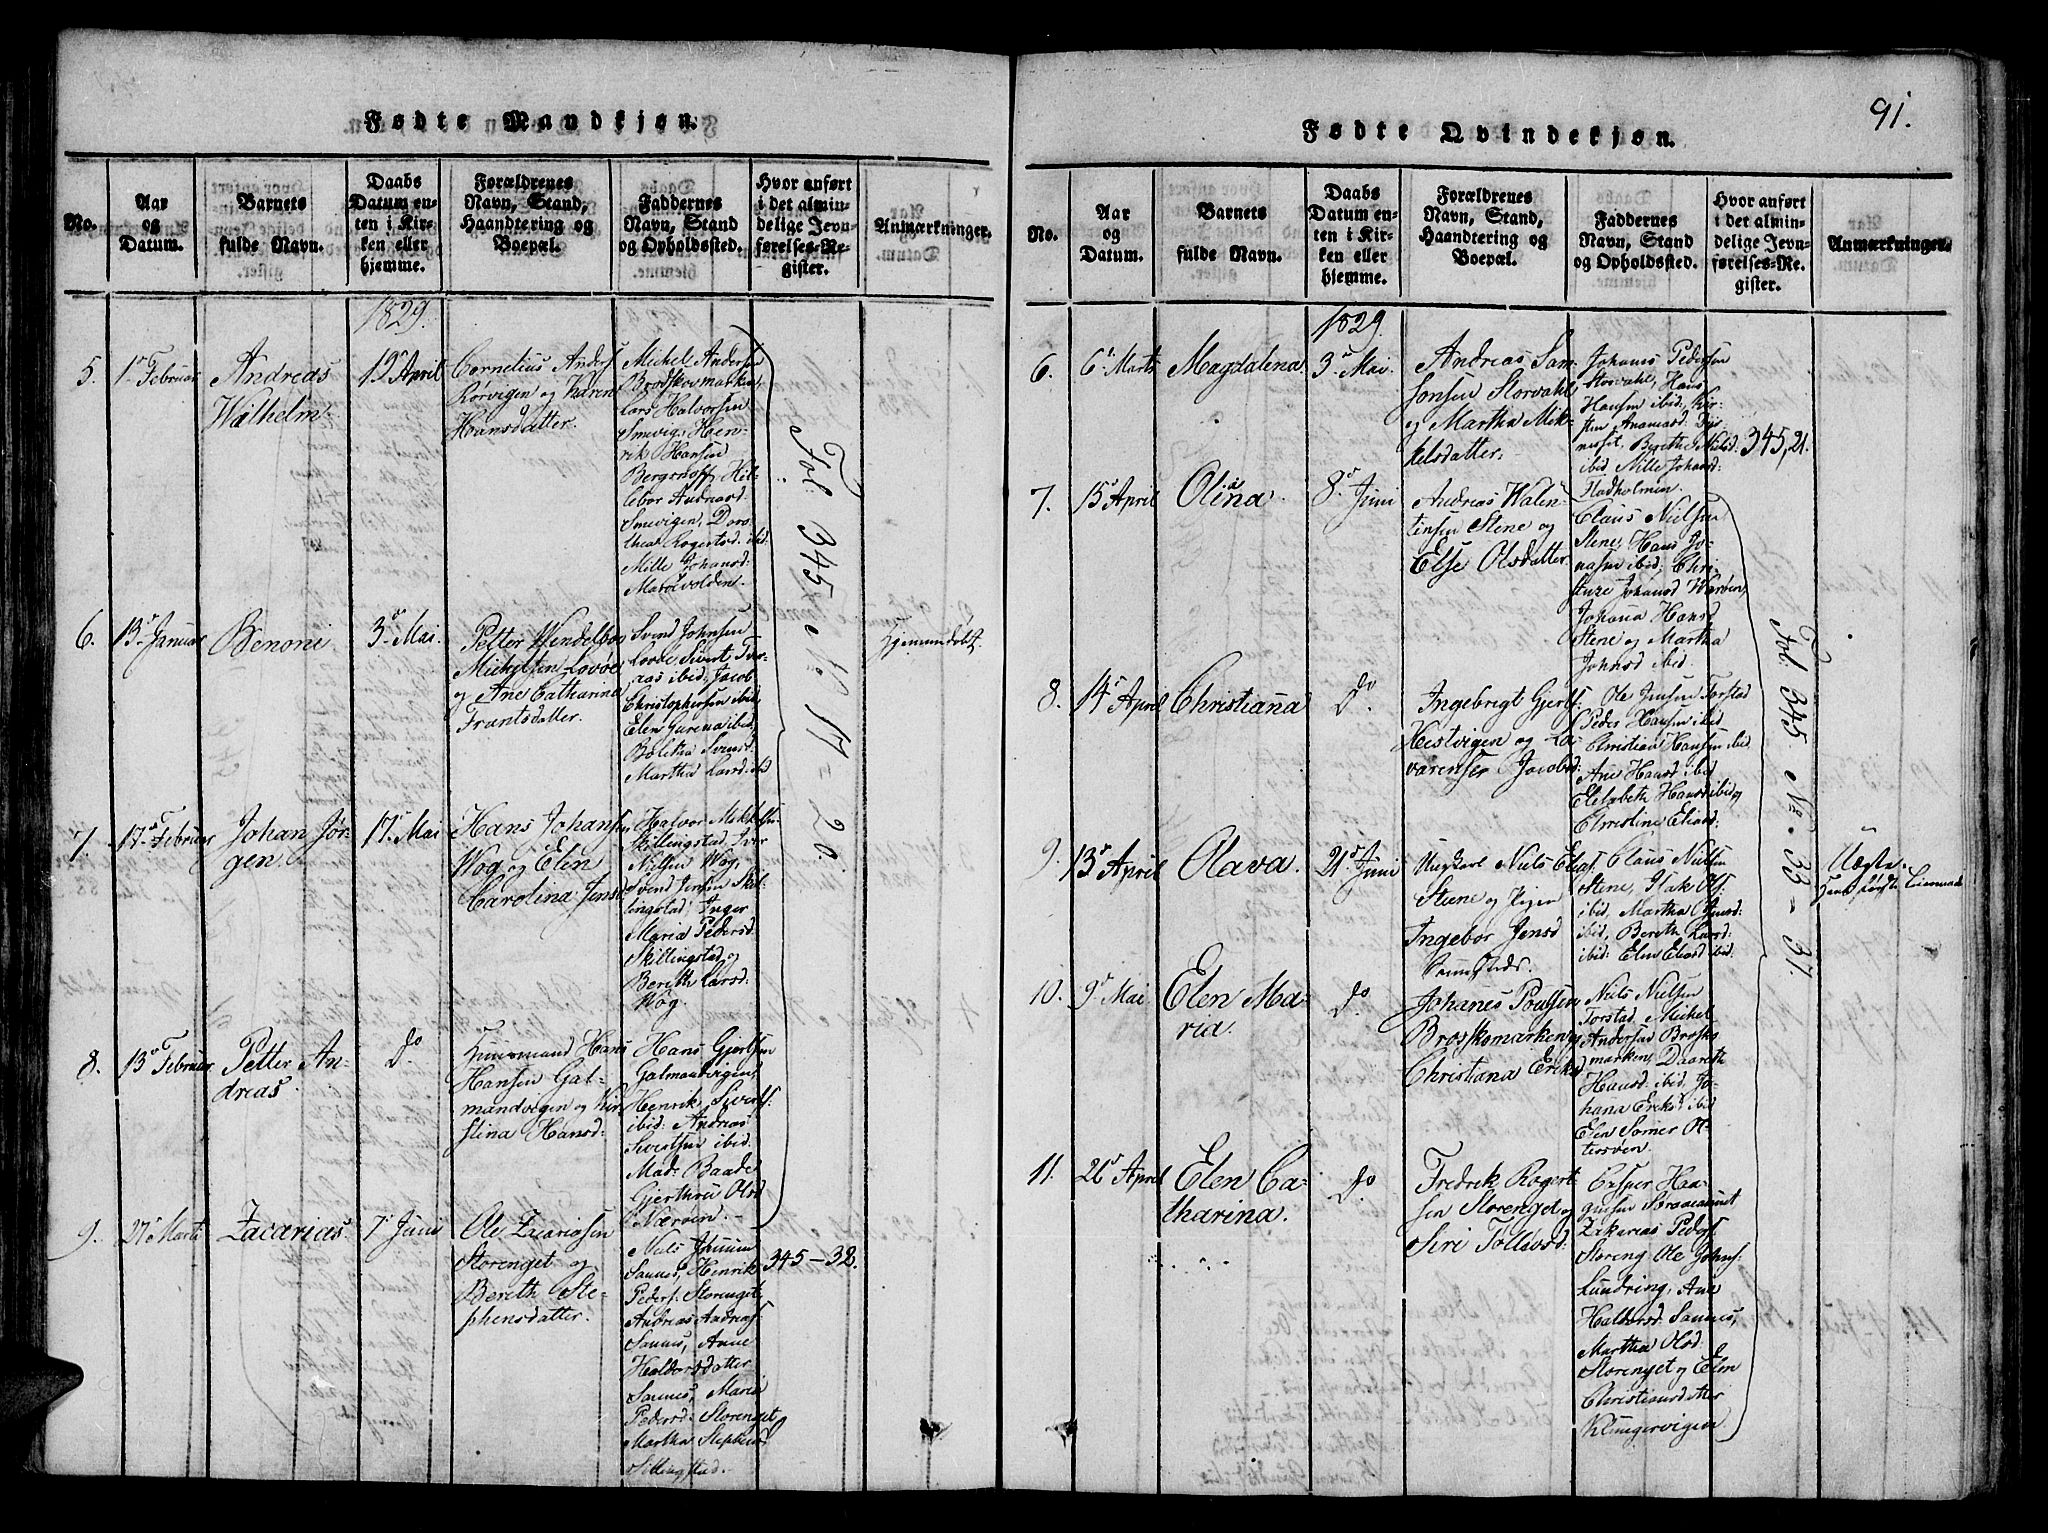 91.
Fødte Mandkjøn.
No.
Aar
og
Datum.
Barnets
fulde Navn.
Daabs
Datum en-
ten i Kir-
ken eller
hjemme.
Forældrenes
Navn, Stand,
Haandtering og
Boepæl.
Faddernes
Navn, Stand
og Opholdssted.
Hvor anført
i det almin-
delige Jevn-
førelses-Re-
gister.
Anmærkninger.
1829.
5.
1r Februar
Andreas
Wilhelm
19r April
Cornelius Anders
Rørvigen og Karen
Hansdatter.
Michel Andersen
Brodskovmarken,
Lars Halvorsen
Smevig, Hen-
rik Hansen
Andreasd:
Smevigen, Doro
thea Rogertsd: ibid:
Mille Johansd:
Marolvolden.
Fol: 345. No. 17 - 20.
6.
13r Januar
Benoni
3r Mai.
Petter Wendelbo
Mickelsen Lovøe
og Ane Catharina
Frantsdatter.
Svend Johnsen
Lovøe, Sivert
ibid: Jacob
Christophersen ibid,
Elen ibid,
Svensd:
Martha Larsd: ibid
Hjemmedøbt.
7.
17r Februar
Johan Jør-
gen.
17r Mai
Hans Johansen
Wog og Elen
Carolina Jensd
Halvor Mikkels:
Skillingstad, Iver
Nilsen Wog,
Svend Jensen Skil-
lingstad, Inger
Maria Pedersd:
Skillingstad, og
Bereth Larsd:
Wog.
8.
13r Februar
Petter An-
dreas.
Do
Huusmand Hans
Hansen Gal-
mandvigen og Kir-
stina Hansd:
Hans Gjertsen
Galmandvigen,
Henrik Siverts:
ibid: Andreas
Sivertsen ibid.
Mad: Baade
Gjerthru Olsd
Nærøen.
9.
27r Marti
Zacarias.
7r Juni
Ole Zacariasen
Storenget og
Bereth Ste-
phensdatter.
Niels
Sannes, Henrik
Peders: Storenget,
Andreas Andreas:
Sannes, Anne
Haldorsdatter
Sannes, Maria
Pedersd: Storenget
Martha Stephensd
345-32.
Fødte Qvindekjøn.
No.
Aar
og
Datum.
Barnets
fulde Navn.
Daabs
Datum en-
ten i Kir-
ken eller
hjemme.
Forældrenes
Navn, Stand,
Haandtering og
Boepæl.
Faddernes
Navn, Stand
og Opholdssted.
Hvor anført
i det almin-
delige Jevn-
førelses-Re-
gister.
Anmærkninger.
1829.
6.
6r Marts
Magdalena.
3r Mai.
Andreas Sam-
sonsen Storvahl
og Martha Mik-
kelsdatter.
Johanes Pedersen
Storvahl, Hans
Hansen ibid, Kir-
sten
Bereth Nilsd:
ibid Nille Johansd:
Fladholmen.
345, 21.
7.
15r April
Olina.
8r Juni
Andreas Walen-
tinsen Stene og
Else Olsdatter
Claus Nielsen
Stene, Hans Jo-
nasen ibid: Chri-
stense Johansd Wærøen,
Johana Hansd
Stene og Martha
Johnsd ibid.
Fol: 345. No. 33 - 37.
8.
14r April
Christiana
Do
Ingebrigt Gjerts:
Hestvigen og La-
varense Jacobsd:
Ole Jensen Torstad
Peder Hansen ibid
Christian Hansen ibid
Ane Hansd ibid
Elisabeth Hansd ibid og
Christine Eliasd:
9.
13r April
Olava.
21r Juni
Ungkarl Niels Elias:
Stene og Pigen
Ingebor Jensd
Claus Nielsen
Stene, Isak Ols:
ibid, Martha Jensd:
ibid, Bereth Larsd:
ibid: Elen Eliasd ibid.
Uægte.
10.
9r Mai
Elen Ma-
ria.
Do
Johanes Poulsen
Brosskomarken og
Christiana Eriksd
Niels Nielsen
Torstad, Michel
Andersen Brosko
marken, Daareth
Hansd: ibid, Jo-
hana Eriksd ibid
Elen Somer Ot-
tersøen.
11.
26r April
Elen Ca-
tharina.
Do
Fredrik Rogert-
sen Storenget og
Siri Tollevsd:
Casper Haa-
gensen
Zakarias Peders:
Storeng Ole Johns:
Lundring, Ane
Haldorsd. Sannes,
Martha Olsd:
Storenget og Elen
Christiansdatter
Klungervigen